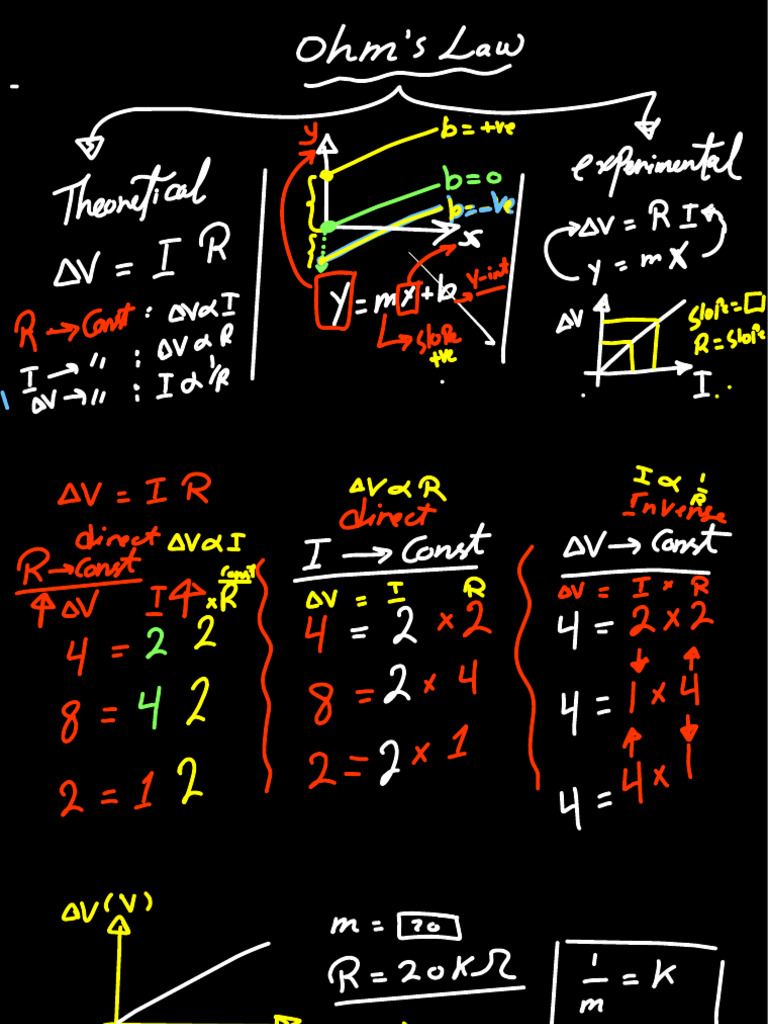 Ohm's Law
Theoretical
ΔV = I R
R → Const : ΔV α I
I → " : ΔV α R
ΔV → " : I α 1/R
y
b = +ve
b = 0
b = -ve
x
y = mx + b
y-int
slope
+ve
experimental
ΔV = R I
y = m x
ΔV
I
slope = □
R = slope
ΔV = I R
direct ΔV α I
R → Const
ΔV I × R
const
4 = 2 2
8 = 4 2
2 = 1 2
ΔV α R
direct
I → Const
ΔV = I R
4 = 2 × 2
8 = 2 × 4
2 = 2 × 1
I α 1/R
Inverse
ΔV → Const
ΔV = I × R
4 = 2 × 2
4 = 1 × 4
4 = 4 × 1
ΔV (V)
R = 20 KΩ
1/m = K